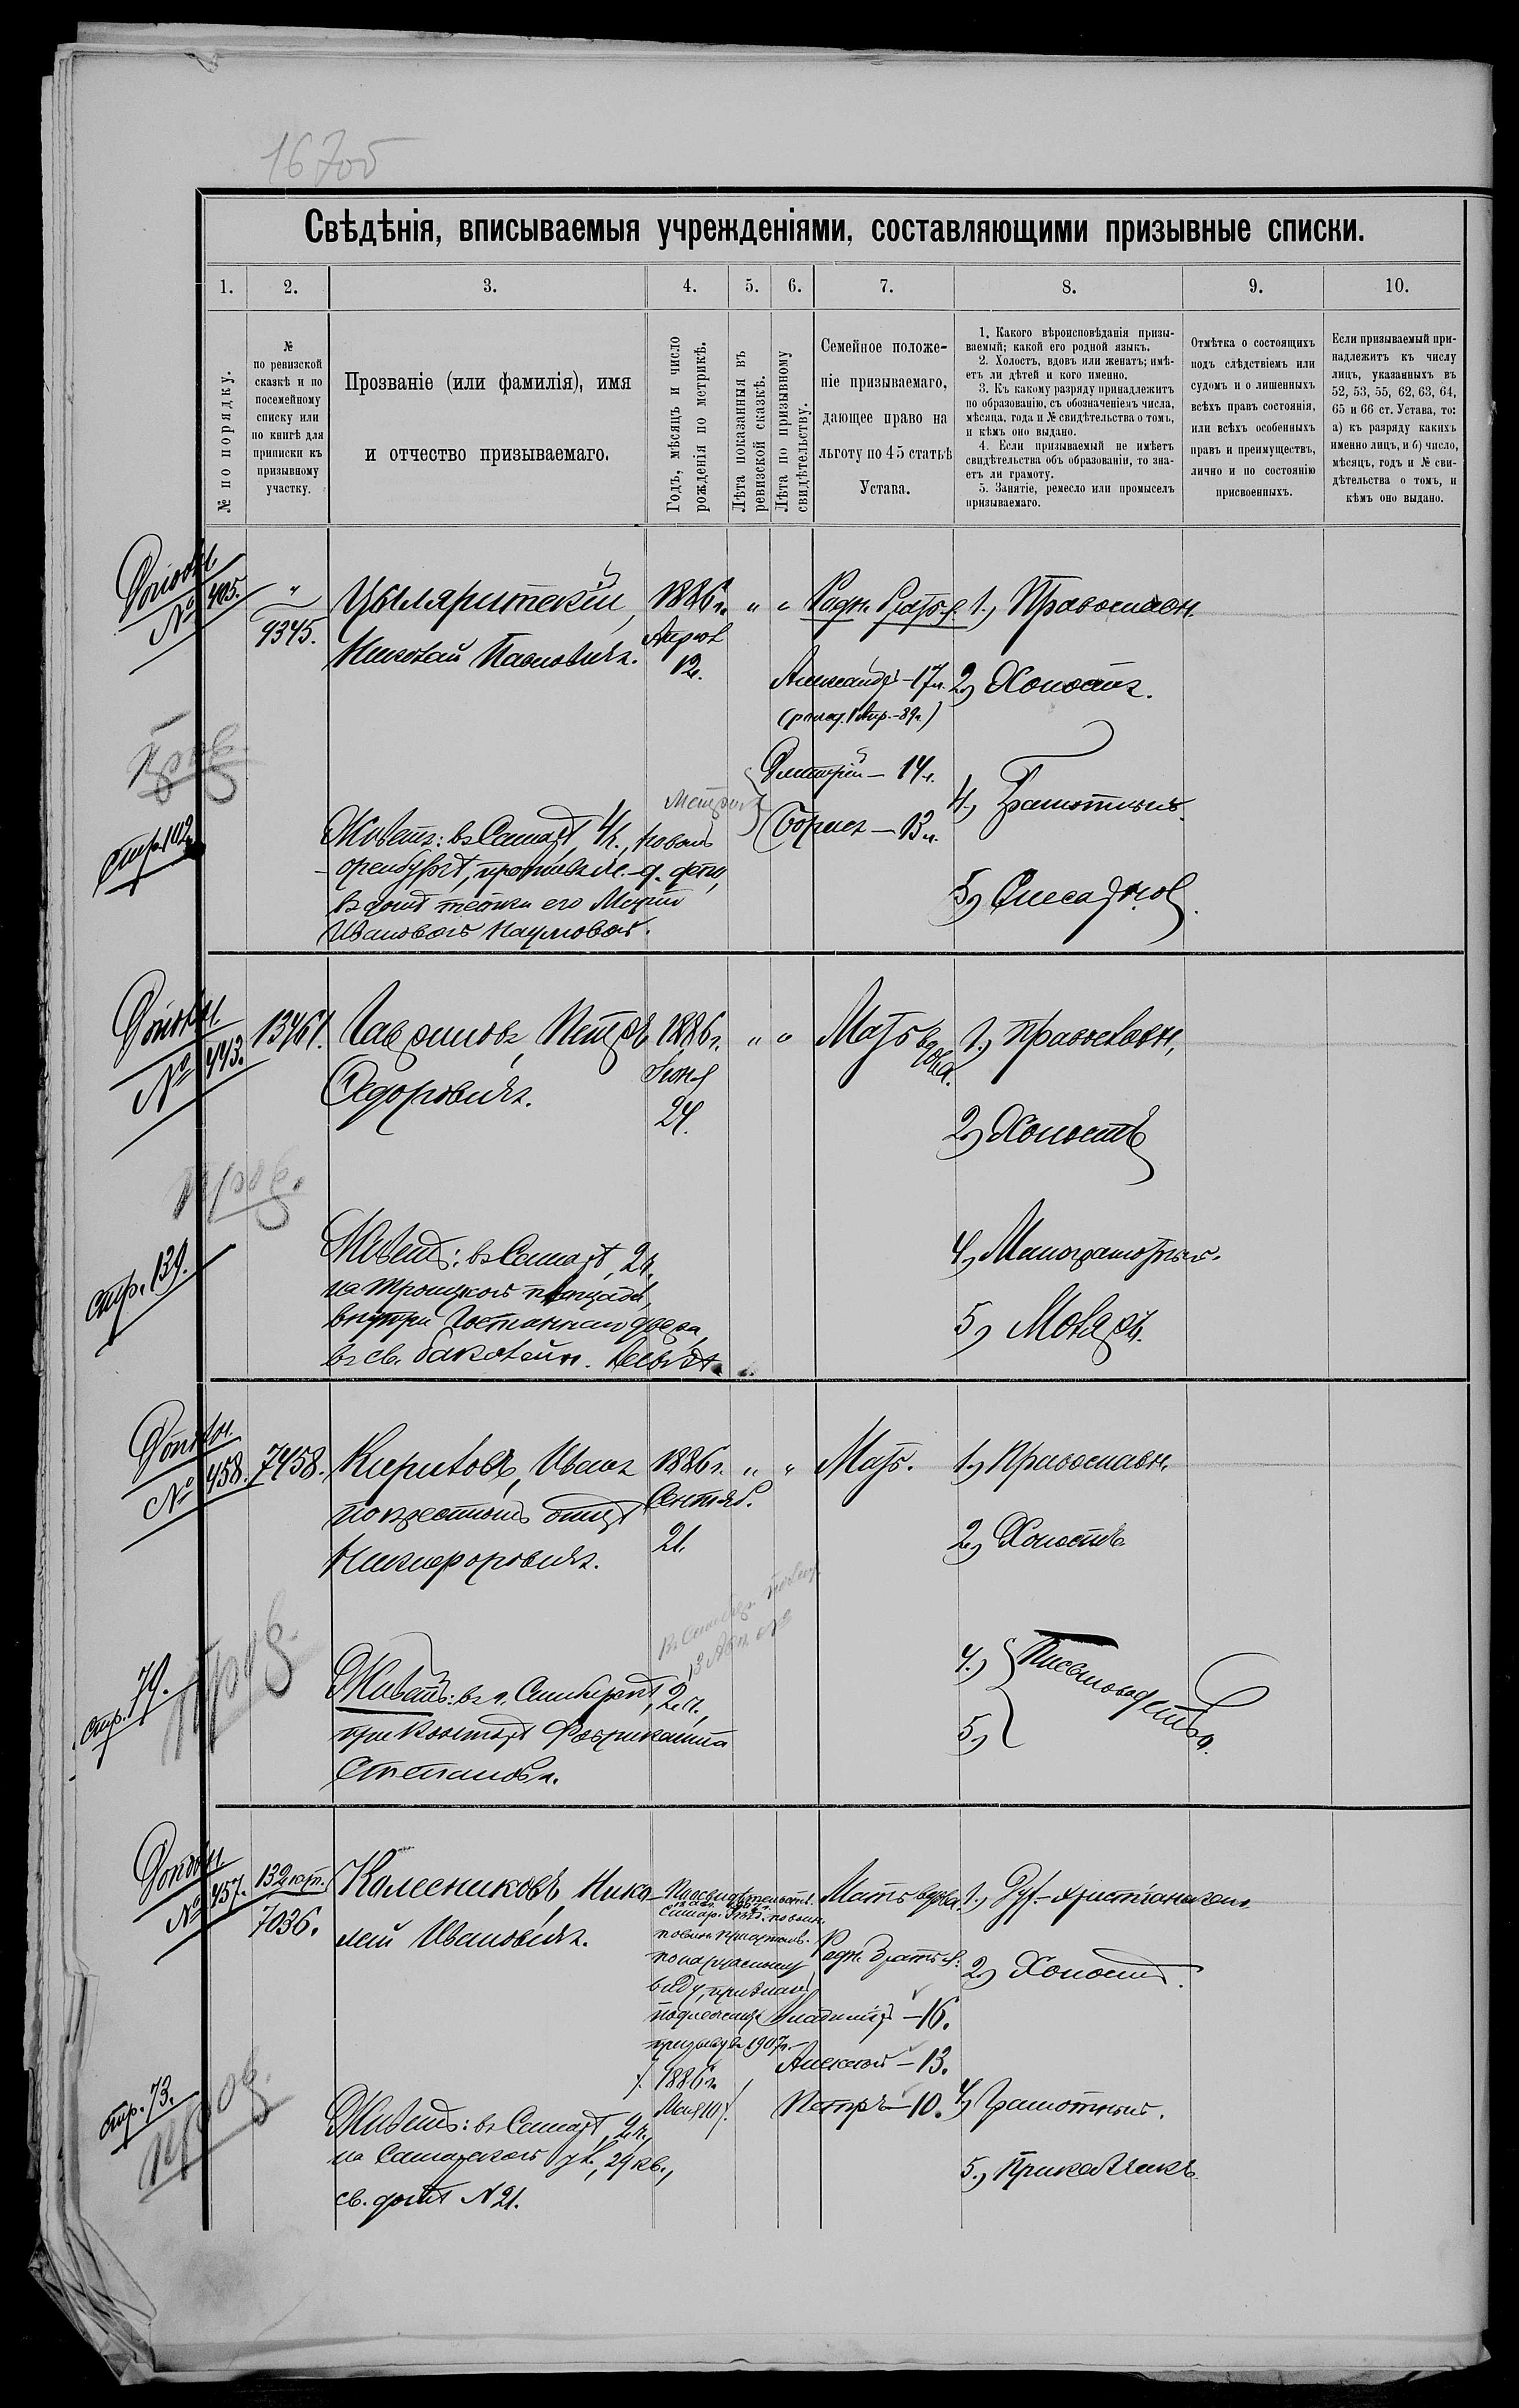 167об
Свѣдѣнія, вписываемыя учрежденіями, составляющими призывные списки.
1. 2. 3. 4. 5. 6. 7. 8. 9. 10.
№ по порядку.
№
по ревизской
сказкѣ и по
посемейному
списку или
по книгѣ для
приписки къ
призывному
участку.
Прозваніе (или фамилія), имя
и отчество призываемаго.
Годъ, мѣсяцъ и число
рожденія по метрикѣ.
Лѣта показанныя въ
ревизской сказкѣ.
Лѣта по призывному
свидѣтельству.
Семейное положе-
ніе призываемаго,
дающее право на
льготу по 45 статьѣ
Устава.
1. Какого вѣроисповѣданія призы-
ваемый; какой его родной языкъ.
2. Холостъ, вдовъ или женатъ; имѣ-
етъ ли дѣтей и кого именно.
3. Къ какому разряду принадлежитъ
по образованію, съ обозначеніемъ числа,
мѣсяца, года и № свидѣтельства о томъ,
и кѣмъ оно выдано.
4. Если призываемый не имѣетъ
свидѣтельства объ образованіи, то зна-
етъ ли грамоту.
5. Занятіе, ремесло или промыселъ
призываемаго.
Отмѣтка о состоящихъ
подъ слѣдствіемъ или
судомъ и о лишенныхъ
всѣхъ правъ состоянія,
или всѣхъ особенныхъ
правъ и преимуществъ,
лично и по состоянію
присвоенныхъ.
Если призываемый при-
надлежитъ къ числу
лицъ, указанныхъ въ
52, 53, 55, 62, 63, 64,
65 и 66 ст. Устава, то:
а) къ разряду какихъ
именно лицъ, и б) число,
мѣсяцъ, годъ и № сви-
дѣтельства о томъ, и
кѣмъ оно выдано.
Дополн.
№ 405.
"
9345.
Николай Павловичъ.
1886 г.
Апрѣля
12.
" "
Родн. братья:
Александръ — 17 л.
Дмитрій — 14 л.
Борисъ — 13 л.
1, Православн.
2, Холостъ.
4, Грамотный.
5, Слесарь.
Пров.
стр. 102
Живетъ: въ Самарѣ, 4 ч., новый
оренбургъ,
въ домѣ тетки его Маріи
Ивановой Наумовой.
Дополн.
№ 443.
13461.
Гавриловъ, Петръ
Федоровичъ.
1886 г.
Іюня
24.
" "
Мать вдова.
1, Православн.
2, Холостъ
4, Малограмотный.
5, Маляръ.
Пров.
стр. 139.
Живетъ: въ Самарѣ, 2 ч.
на Троицкой площади,
внутри Гостиннаго двора,
въ св. бакалейн.
Дополн.
№ 458.
7458.
Кириловъ, Иванъ
по крестному отцу
Никифоровичъ.
1886 г.
Сентяб.
21.
" "
Мать.
1, Православн.
2, Холостъ
4,
5,
Письмоводство.
Пров.
стр. 79.
Живетъ:
Степанова.
Дополн.
№ 457.
132 ют.
7036.
Колесниковъ, Нико-
лай Ивановичъ.
По свидѣтельств.
по наружному
виду, признанъ
подлежащ.
призыву въ 1907 г.
1886 г.
Мая 10
Мать вдова.
Родн. братья:
Владиміръ — 16.
Алексѣй — 13.
Петръ — 10.
2, Холостъ.
4, Грамотный.
5, Прикащикъ
Пров.
стр. 73.
Живетъ: въ Самарѣ, 2 ч.,
на Самарской ул., 29 кв.,
св. домъ № 21.